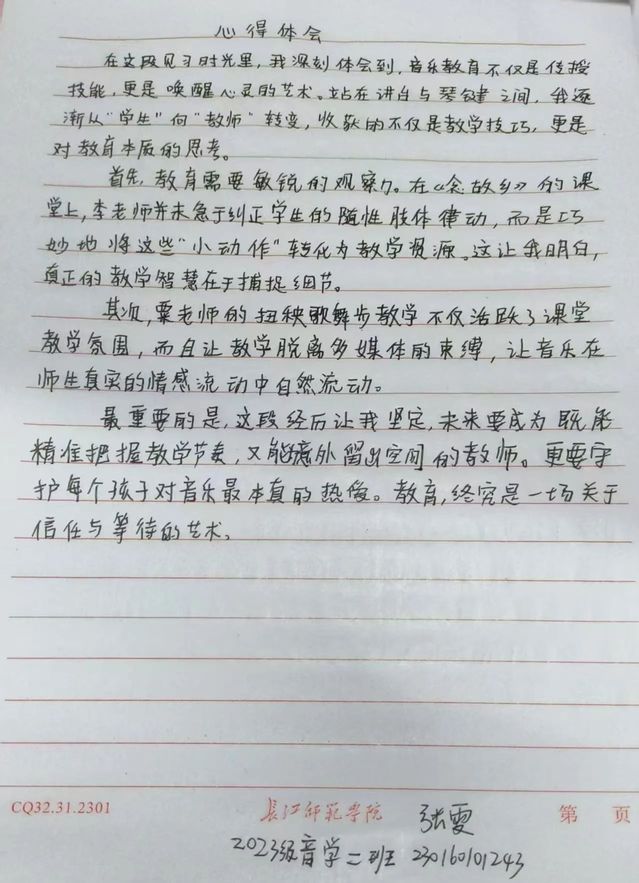 心得体会
在这段见习时光里，我深刻体会到，音乐教育不仅是传授
技能，更是唤醒心灵的艺术。站在讲台与琴键之间，我逐
渐从“学生”向“教师”转变，收获的不仅是教学技巧，更是
对教育本质的思考。
首先，教育需要敏锐的观察力。在《念故乡》的课
堂上，李老师并未急于纠正学生的随性肢体律动，而是巧
妙地将这些“小动作”转化为教学资源。这让我明白，
真正的教学智慧在于捕捉细节。
其次，粟老师的扭秧歌舞步教学不仅活跃了课堂
教学氛围，而且让教学脱离多媒体的束缚，让音乐在
师生真实的情感流动中自然流动。
最重要的是，这段经历让我坚定，未来要成为既能
精准把握教学节奏，又能意外留出空间的教师。更要守
护每个孩子对音乐最本真的热爱。教育，终究是一场关于
信任与等待的艺术。
CQ32.31.2301 长江师范学院 张雯 第 页
2023级音学二班 230160101243